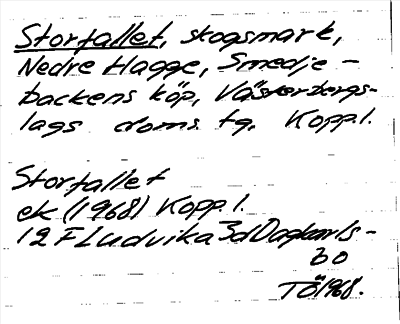 Storfallet, skogsmark,
Nedre Hagge, Smedje-
backens köp, Västerbergs-
lags doms. tg. Kopp.l.
Storfallet
ek (1968) Kopp.l.
12 F Ludvika 3d Dagkarls-
bo
TÖ 1968.